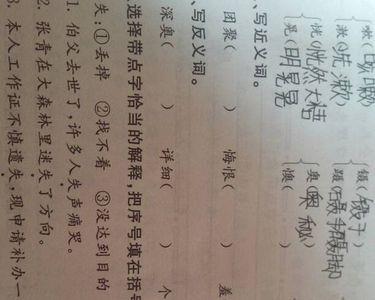 嗽(咳嗽) 镊(镊子)
漱(洗漱) 蹑(蹑手蹑脚)
奥(奥秘)
晃(明晃晃) 懊(
、写近义词。
团聚( ) 悔恨( ) 羞
、写反义词。
深奥( ) 详细( ) 个
选择带点字恰当的解释,把序号填在括号
失:①丢掉 ②找不着 ③没达到目的
1. 伯父去世了,许多人失声痛哭。
2. 张青在大森林里迷失了方向。
3. 本人工作证不慎遗失,现申请补办一